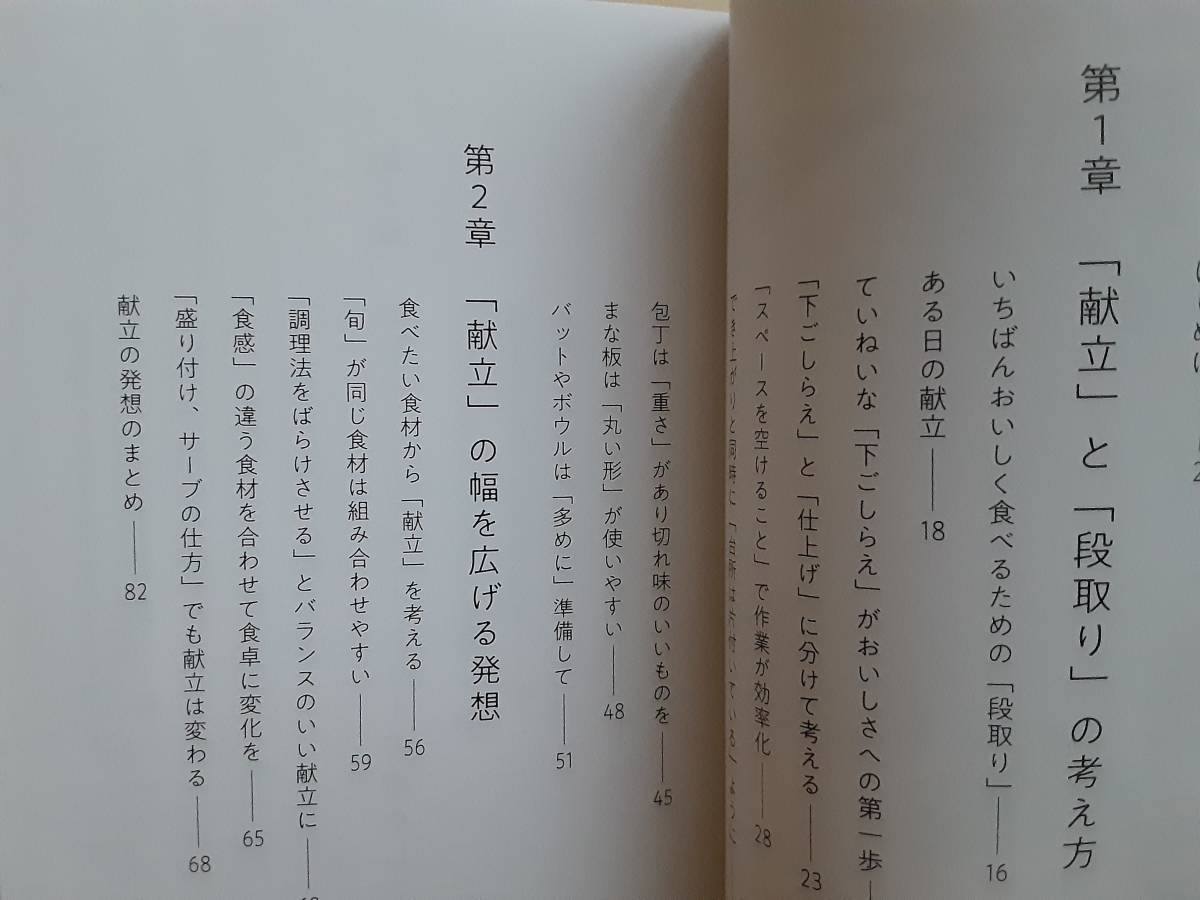 第1章 「献立」と「段取り」の考え方
いちばんおいしく食べるための「段取り」 16
ある日の献立 18
ていねいな「下ごしらえ」がおいしさへの第一歩
「下ごしらえ」と「仕上げ」に分けて考える 23
「スペースを空けること」で作業が効率化 28
でき上がりと同時に「台所は片付いている」ように
包丁は「重さ」があり切れ味のいいものを 45
まな板は「丸い形」が使いやすい 48
バットやボウルは「多めに」準備して 51
第2章 「献立」の幅を広げる発想
食べたい食材から「献立」を考える 56
「旬」が同じ食材は組み合わせやすい 59
「調理法をばらけさせる」とバランスのいい献立に
「食感」の違う食材を合わせて食卓に変化を 65
「盛り付け、サーブの仕方」でも献立は変わる 68
献立の発想のまとめ 82